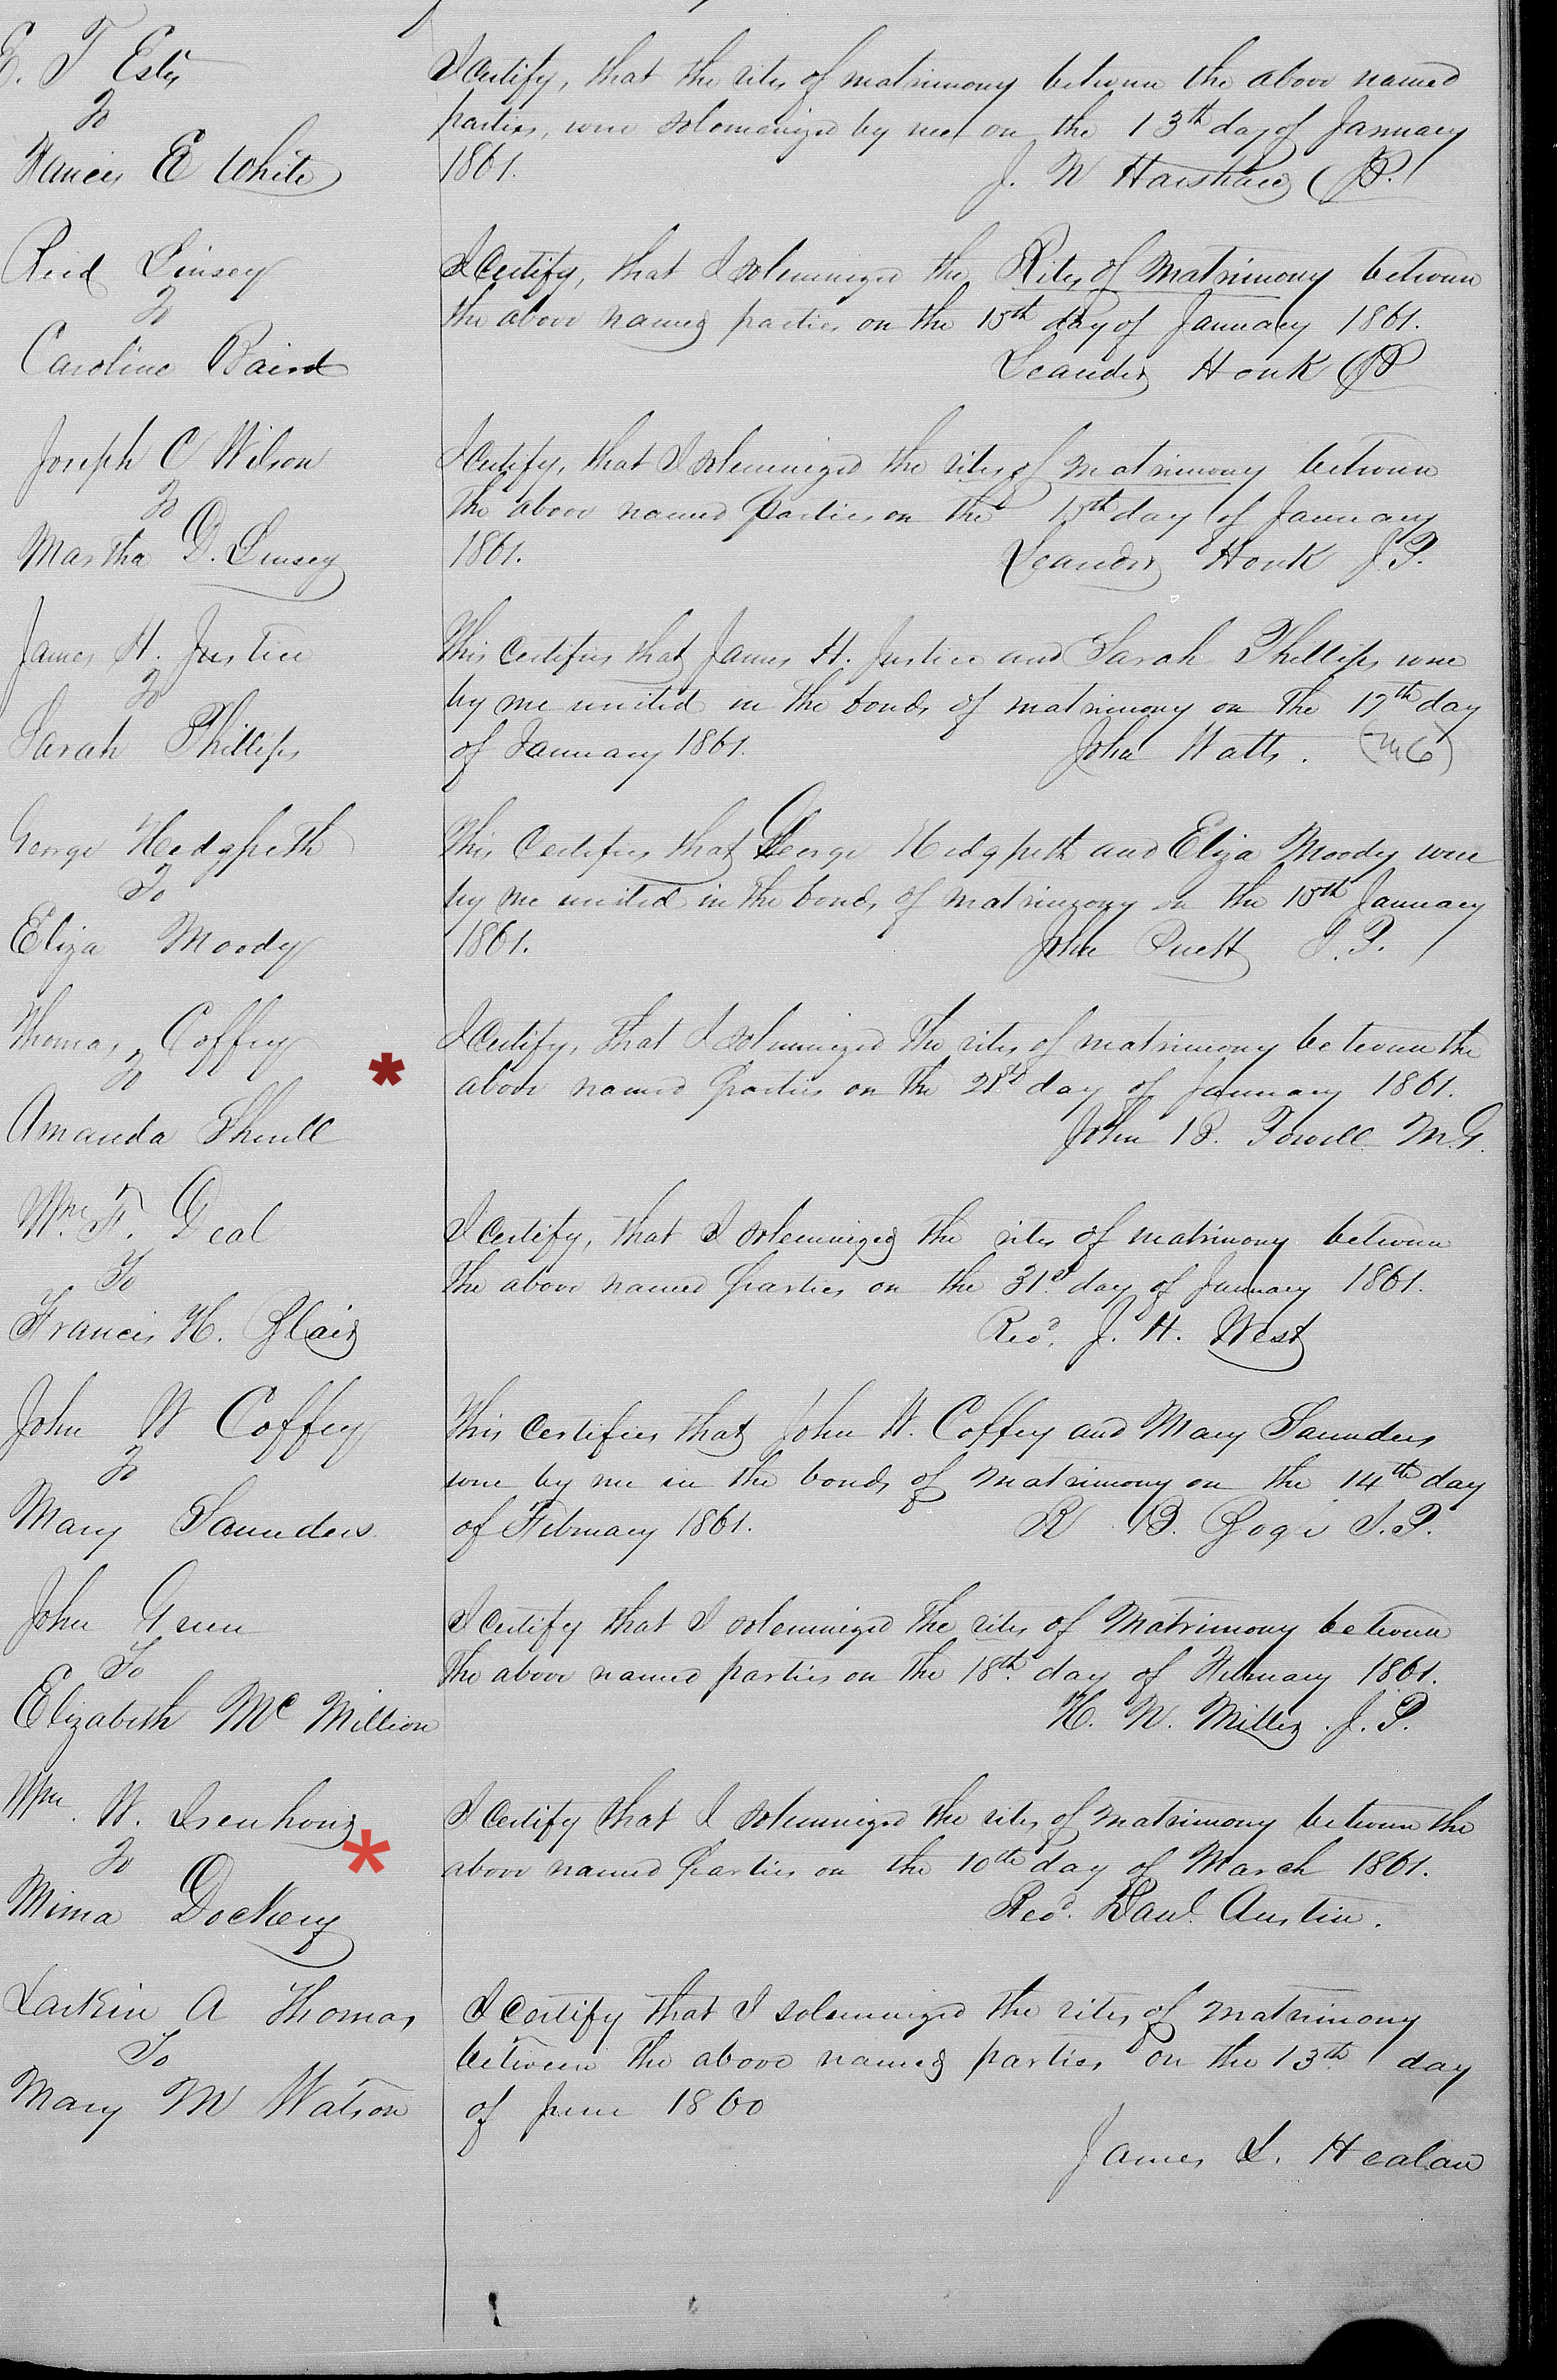 E. T Estes
To
Francis E White
I Certify, that the rites of matrimony between the above named
parties, were solemenized by me on the 13th day of January
1861.
J. N Harshaw (JP.)
Reid Linsey
To
Caroline Baird
I Certify, that I solemnized the Rites of Matrimony between
the above named parties on the 15th day of January 1861.
Leander Houk JP
Joseph C Wilson
To
Martha D. Linsey
I Certify, that I solemnized the rites of matrimony between
the above named Parties on the 15th day of January
1861.
Leander Houk J.P.
James H. Justice
To
Sarah Phillips
This Certifies that James H. Justice and Sarah Phillips were
by me united in the bonds of matrimony on the 17th day
of January 1861.
John Watts. (MG)
George Hedgpeth
To
Eliza Moody
This Certifies that George Hedgpeth and Eliza Moody were
by me united in the bonds of matrimony on the 15th January
1861.
John Puett J.P.
Thomas Coffey
To
Amanda Sherrill
*
I Certify, that I solemnized the rites of matrimony between the
above named parties on the 21st day of January 1861.
John B. Powell M.G.
Wm. F. Deal
To
Francis H. Blair
I Certify, that I solemnized the rites of matrimony between
the above named parties on the 31st day of January 1861.
Revd. J. H. West
John W Coffey
To
Mary Saunders
This Certifies that John W. Coffey and Mary Saunders
were by me in the bonds of Matrimony on the 14th day
of February 1861.
R B. Bogle J.P.
John Green
To
Elizabeth Mc Million
I Certify that I solemnized the rites of Matrimony between
the above named parties on the 18th day of February 1861.
H. W. Miller J.P.
Wm. W. Isenhour
To
Mima Dockery
*
I Certify that I solemnized the rites of matrimony between the
above named parties on the 10th day of March 1861.
Revd. Danl. Austin.
Larkin A Thomas
To
Mary M Watson
I Certify that I solemnized the rites of matrimony
between the above named parties on the 13th day
of June 1860
James L. Healan